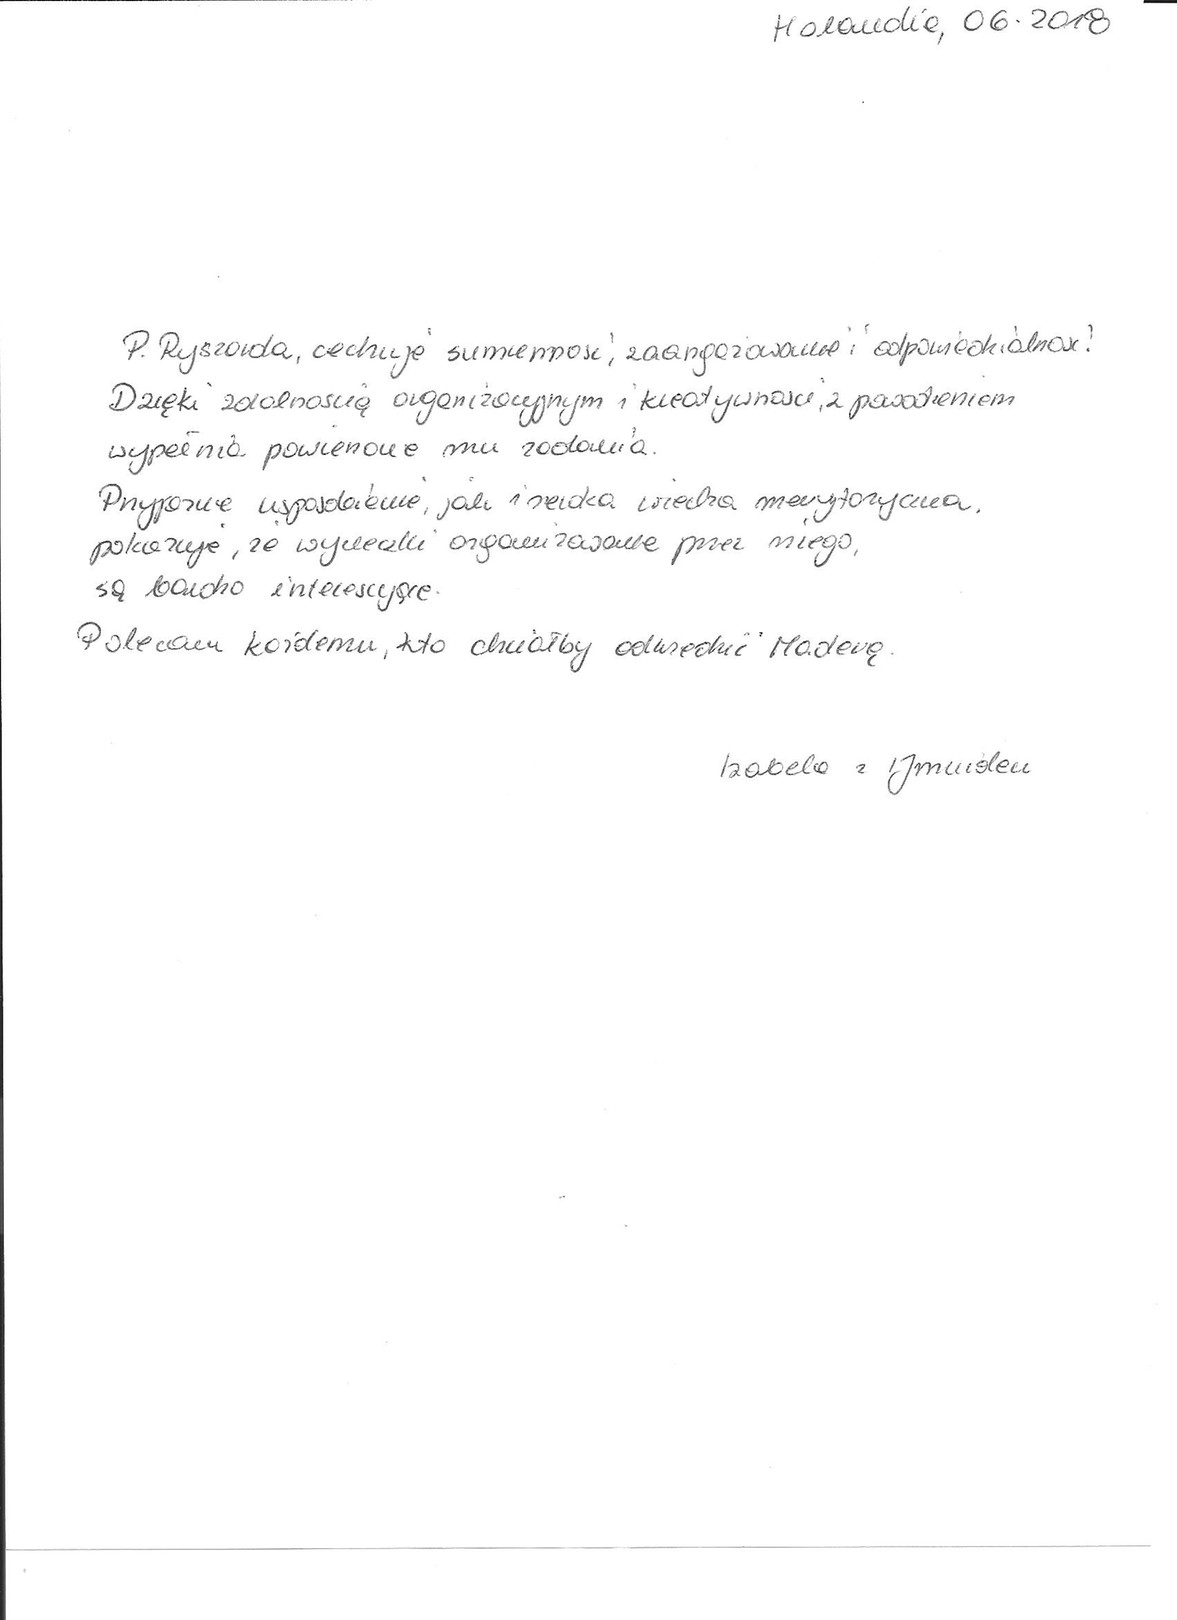 Holandia, 06.2018
P. Ryszarda, cechuje sumienność, zaangażowanie i odpowiedzialność!
Dzięki zdolnością organizacyjnym i kreatywności, z powodzeniem
wypełnia powierzone mu zadania.
Przyjazne usposobienie, jak i wiedza merytoryczna,
pokazuje, że wycieczki organizowane przez niego,
są bardzo interesujące.
Polecam każdemu, kto chciałby odwiedzić Maderę.
Izabela z IJmuiden